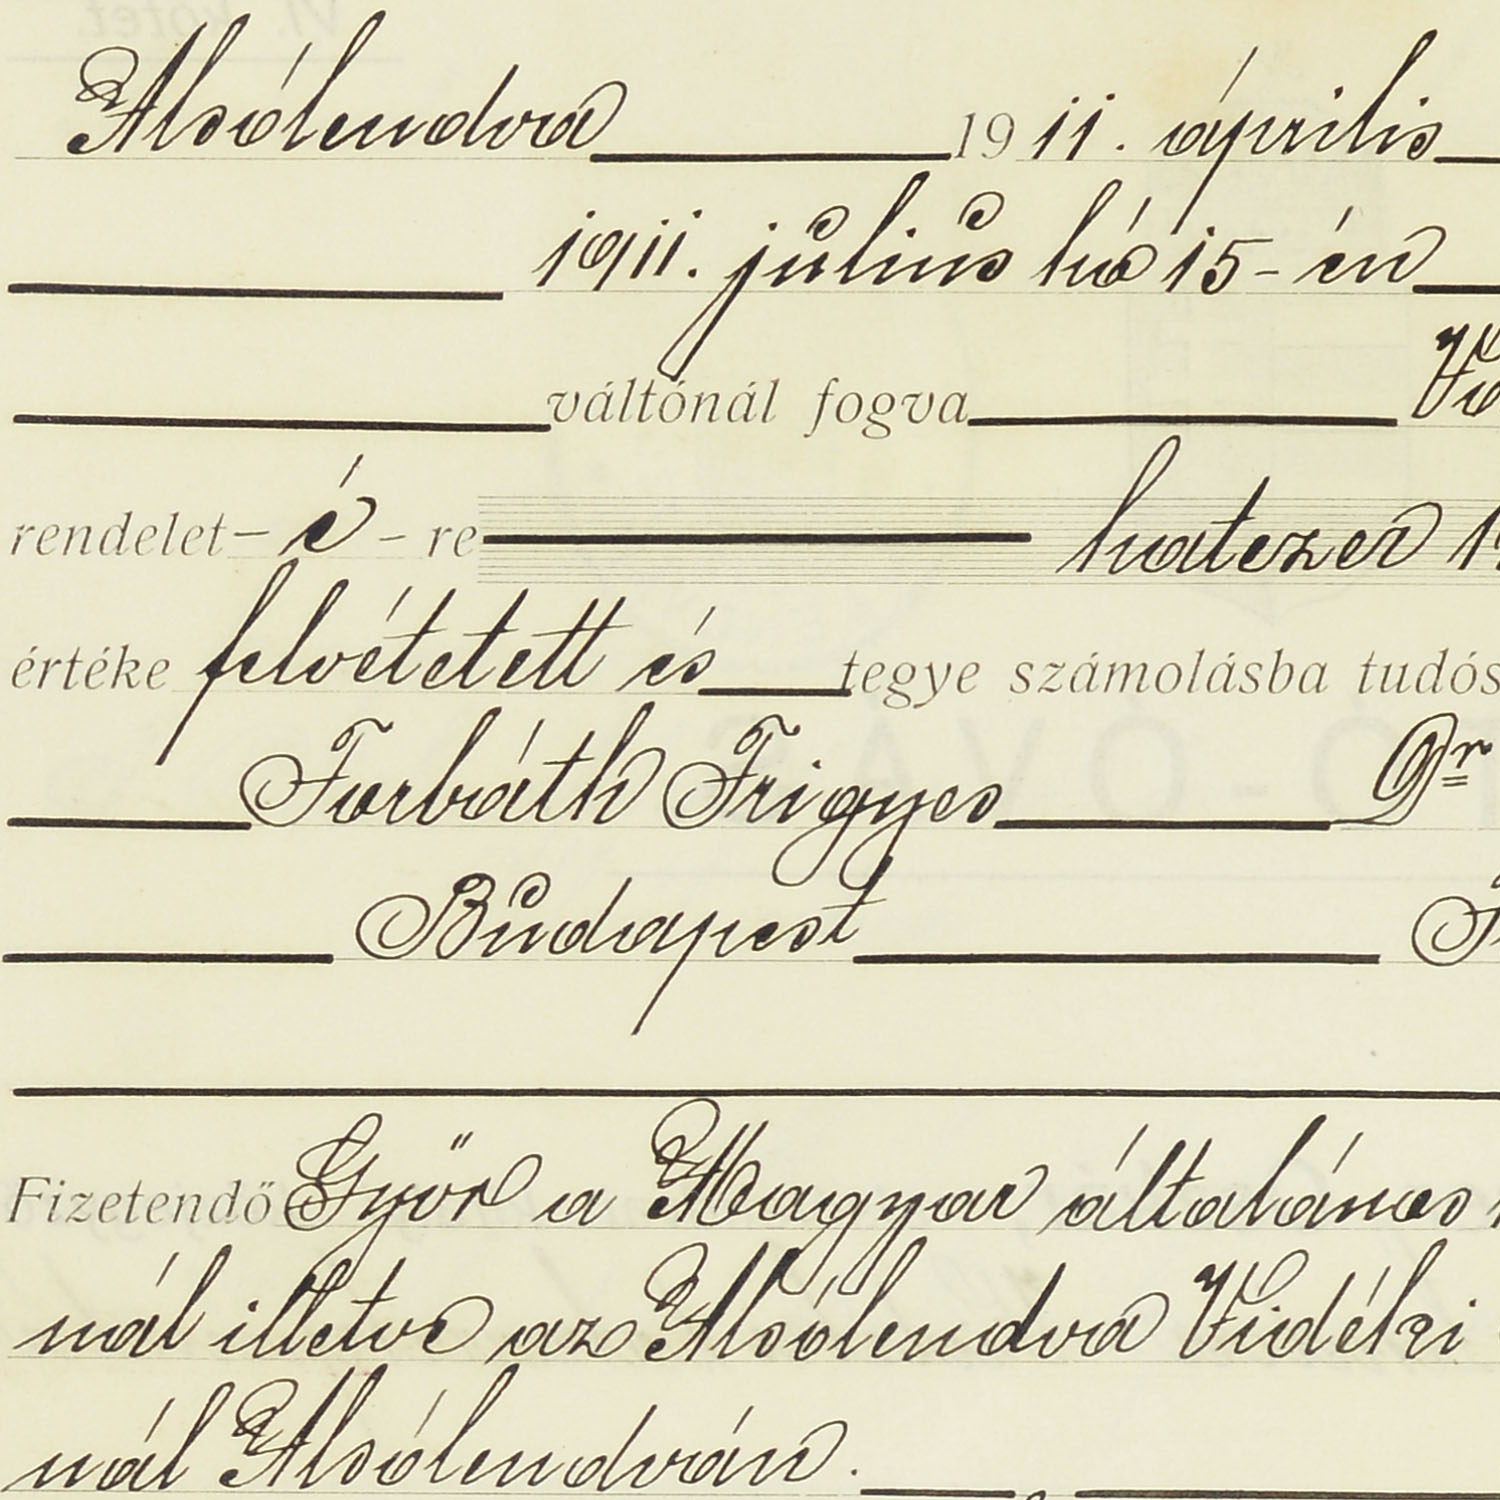 Alsólendva 1911. április
1911. július hó 15-én
váltónál fogva
rendelet-é-re hatezer
értéke felvétetett és tegye számolásba tudós
Forbáth Frigyes Dr
Budapest
Fizetendő Győr a Magyar általános
nál illetve az Alsólendva Vidéki
nál Alsólendván.